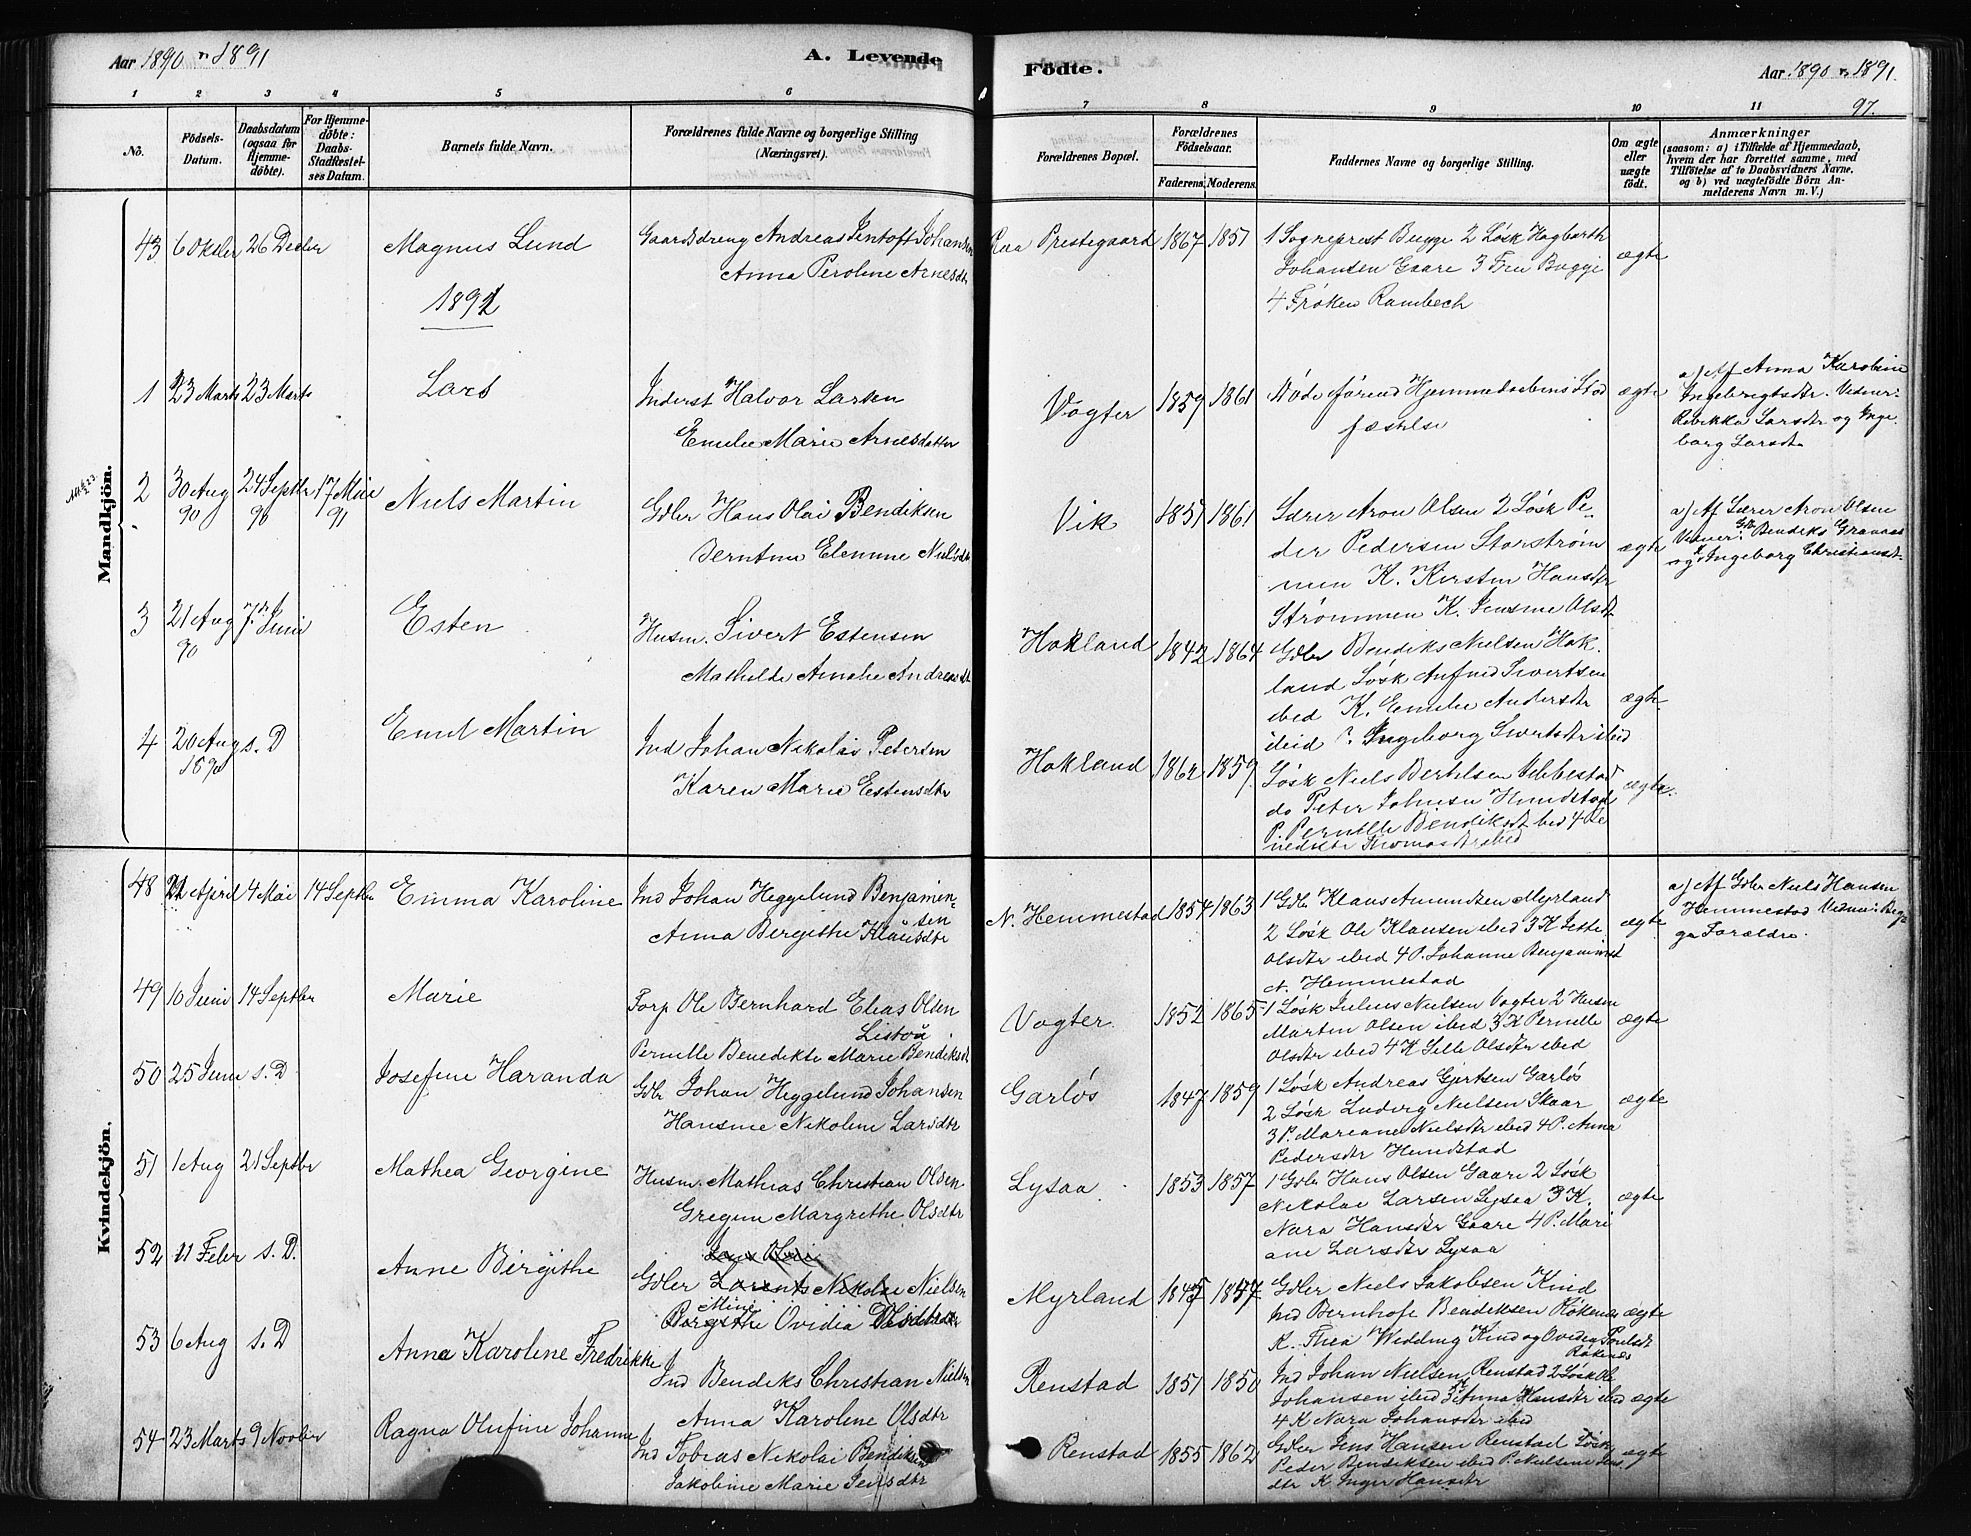 Aar 1890 n 1891
A. Levende
Födte.
Aar 1890 n 1891.
97.
1 2 3 4 5 6 7 8 9 10 11
No.
Födsels-
Datum.
Daabsdatum
(ogsaa for
Hjemme-
döbte).
For Hjemme-
döbte:
Daabs-
Stadfæstel-
ses Datum.
Barnets fulde Navn.
Forældrenes fulde Navne og borgerlige Stilling
(Næringsvei).
Forældrenes Bopæl.
Forældrenes
Födselsaar.
Faderens. Moderens.
Faddernes Navne og borgerlige Stilling.
Om ægte
eller
uægte
födt.
Anmærkninger
(saasom: a) i Tilfælde af Hjemmedaab,
hvem der har forrettet samme, med
Tilföielse af to Daabsvidners Navne,
og b) ved uægtefödte Börn An-
melderens Navn m. V.)
Mandkjön.
43 6 Oktbr 26 Decbr Magnus Lund
Gaardsdreng Andreas Jentoft Johansen
Anna Peroline Arnesdtr
Prestegaard 1867 1851
1 Sogneprest Bugge 2 Løsk Hagbarth
Johansen Gaare 3 Fru Bugge
4 Frøken Rambech
ægte
1891
1 23 Marts 23 Marts Lars
Inderst Halvor Larsen
Emelie Marie Arnesdatter
Vogter 1859 1861
Døde førend Hjemmedaabens Stad
fæstelse
ægte
a) Af Anna Karoline
Ingebrigtsdtr. Vidner:
Rebekka Larsdtr og Inge
borg Larsdtr
2 30 Aug 90 24 Septbr 90 17 Mai 91 Niels Martin
Gdbr Hans Olai Bendiksen
Berntine Elenne Nielsdtr
Vik 1851 1861
Lærer Aron Olsen 2 Løsk Pe-
der Pedersen Storstrøm
men K. Kirsten Hansdtr
Strømmen K. Jensine Olsdtr
ægte
a) Af Lærer Aron Olsen
Vidner: Gbr Bendiks Granaas
og K Ingeborg Christiansdtr
3 21 Aug 90 7de Juni Esten
Husm. Sivert Estensen
Mathilde Amalie Andreasdtr
Hokland 1842 1864
Gdbr Bendiks Nielsen Hok-
land Løsk Anfind Sivertsen
ibid K. Emelie Andersdtr
ibid P. Ingeborg Sivertsdtr ibid
ægte
4 20 Aug 1890 s. D Emil Martin
Ind Johan Nikolai Petersen
Karen Marie Estensdtr
Hokland 1862 1859
Løsk Niels Bertelsen Vebbestad
do Peter Johnsen Hundstad
P. Pernille Bendiksdtr ibid 4 Be
nedicte Thomasdtr ibid
ægte
Kvindekjön.
48 21 April 4 Mai 14 Septbr Emma Karoline
Ind Johan Heggelund Benjamin-
sen
Anna Birgithe Klausdtr
N. Hemmestad 1854 1863
1 Gdb Klaus Amundsen Myrland
2 Løsk Ole Klausen ibid 3 K Jette
Olsdtr ibid 4 P. Johanne Benjaminsdt
N. Hemmestad
ægte
a) Af Gdbr Niels Hansen
Hemmestad Vidner: Beg-
ge Forældre.
49 10 Juni 14 Septbr Marie
Forp Ole Bernhard Elias Olsen
Listou
Pernille Benedikte Marie Bendiksdt
Vogter 1852 1865
1 Løsk Julius Nielsen Vogter 2 Husm
Martin Olsen ibid 3 K Pernille
Olsdtr ibid 4 K Sille Olsdtr ibid
ægte
50 25 Juni s. D Josefine Haranda
Gdbr Johan Heggelund Johansen
Hansine Nikoline Larsdtr
Garløs 1847 1859
1 Løsk Andreas Gjertsen Garløs
2 Løsk Ludvig Nielsen Skaar
3 P. Mariane Nielsdtr ibid 4 P. Anna
Pedersdtr Hundstad
ægte
51 1 Aug 21 Septbr Mathea Georgine
Husm. Mathias Christian Olsen
Gregine Margrethe Olsdtr
Lysaa 1853 1857
1 Gdbr Hans Olsen Gaare 2 Løsk
Nikolai Larsen Lysaa 3 K
Nora Hansdtr Gaare 4 P. Mari
ane Larsdtr Lysaa
ægte
52 11 Febr s. D. Anne Birgithe
Gdbr Lorents Nikolai Nielsen
Mine
Birgithe Ovidia
Myrland 1845 1847
Gdbr Niels Jakobsen Kind
Ind Bernhoft Bendiksen Røkenes
K. Thea Wedding Kind og Ovidia Poulsdt
Røkenes
ægte
53 6 Aug s. D Anna Karoline Fredrikke
Ind Bendiks Christian Nielsen
Anna Karoline Olsdtr
Renstad 1851 1850
Ind Johan Nielsen Renstad 2 Løsk Ole
Johansen ibid 3 P Anna Hansdtr ibid
4 K Nora Johansdtr ibid
ægte
54 23 Marts 9 Novbr Ragna Olufine Johanne
Ind Tobias Nikolai Bendiksen
Jakobine Marie Jensdtr
Renstad 1855 1862
Gdbr Jens Hansen Renstad Løsk
Peder Bendiksen ibid P. Nielsine Jens
dtr K Inger Hansdtr
ægte